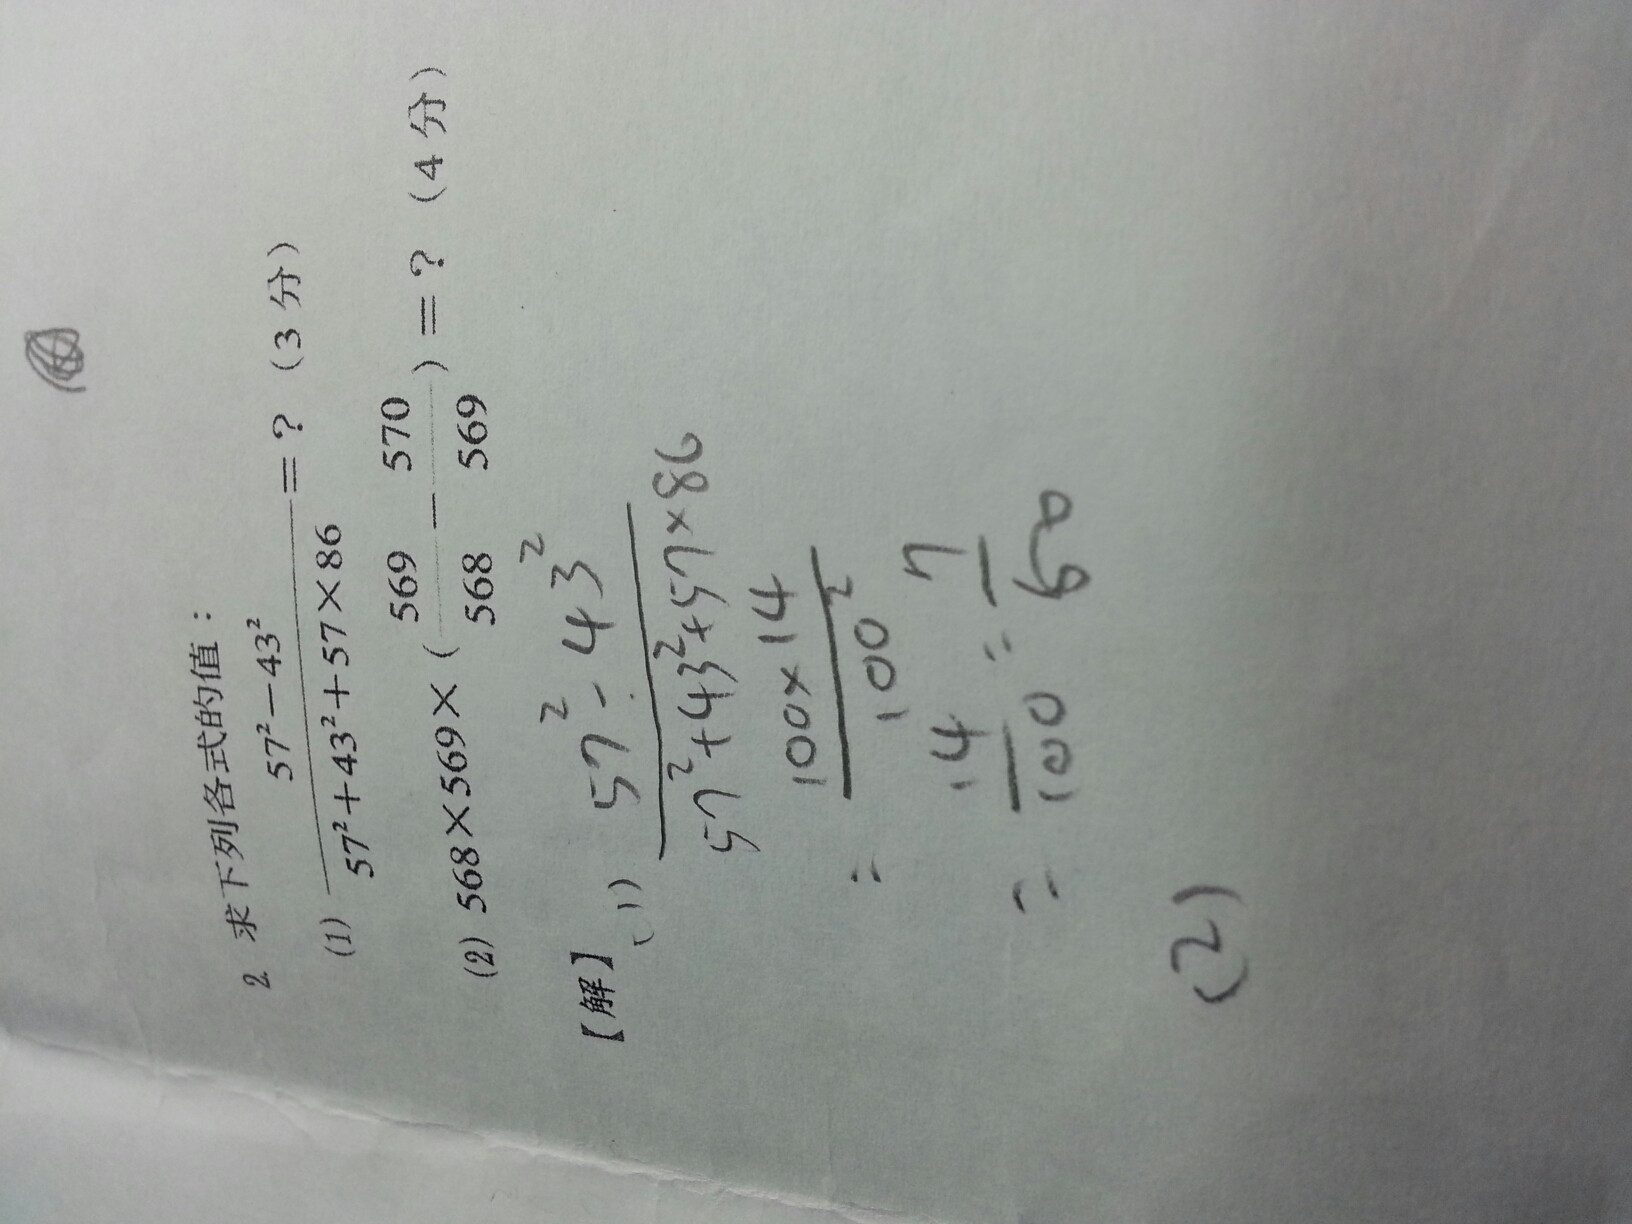 2 求下列各式的值：
(1) (57²－43²)/(57²＋43²＋57×86)＝？（3分）
(2) 568×569×(569/568－570/569)＝？（4分）
【解】
(1) (57²-43²)/(57²+43²+57×86)
= (100×14)/100²
= 14/100 = 7/50
(2)